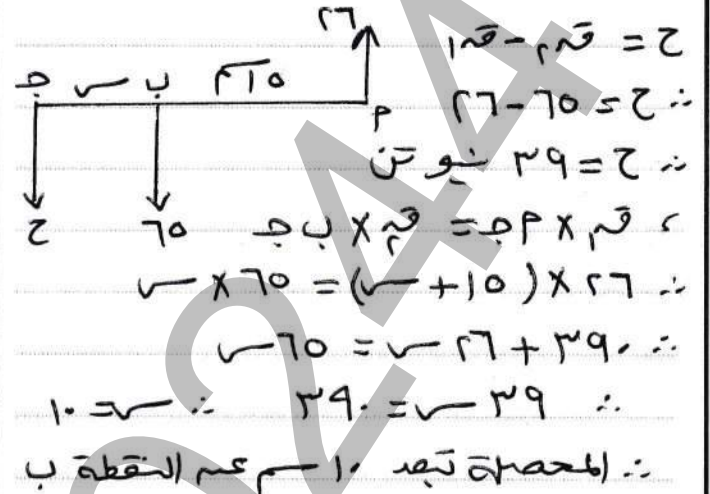 ٢٦
ح = ق٢ - ق١
جـ س ب ١٥سم
أ
∴ ح = ٦٥ - ٢٦
∴ ح = ٣٩ نيوتن
ح ٦٥
، ق١ × أجـ = ق٢ × ب جـ
∴ ٢٦ × (١٥ + س) = ٦٥ × س
∴ ٣٩٠ + ٢٦ س = ٦٥ س
∴ ٣٩ س = ٣٩٠ ∴ س = ١٠
∴ المحصلة تبعد ١٠ سم عن النقطة ب